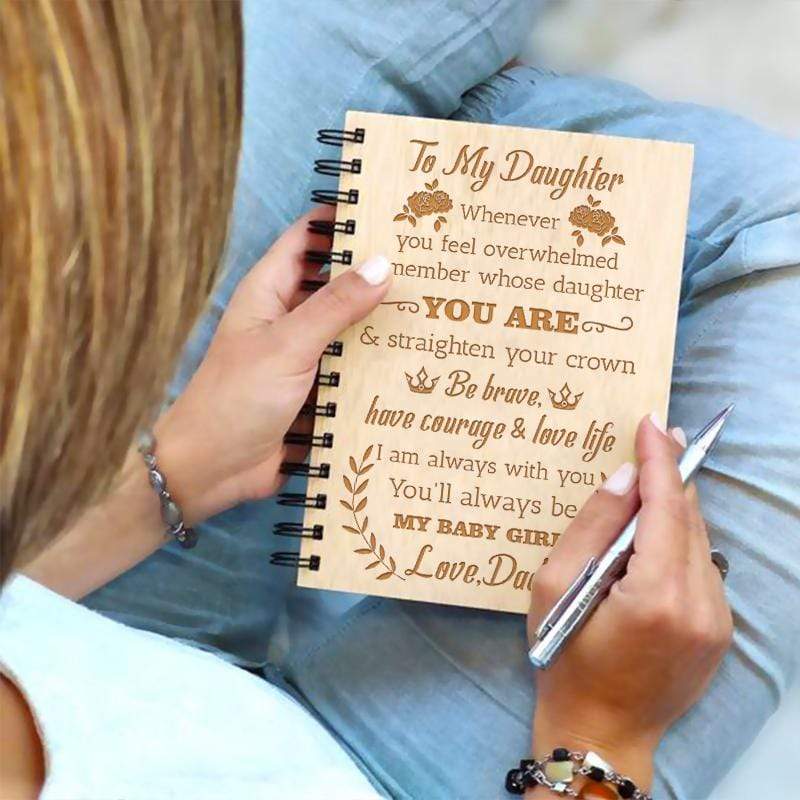 To My Daughter
Whenever
you feel overwhelmed
member whose daughter
YOU ARE
& straighten your crown
Be brave,
have courage & love life
I am always with you
You'll always be
MY BABY GIRL
Love, Dad